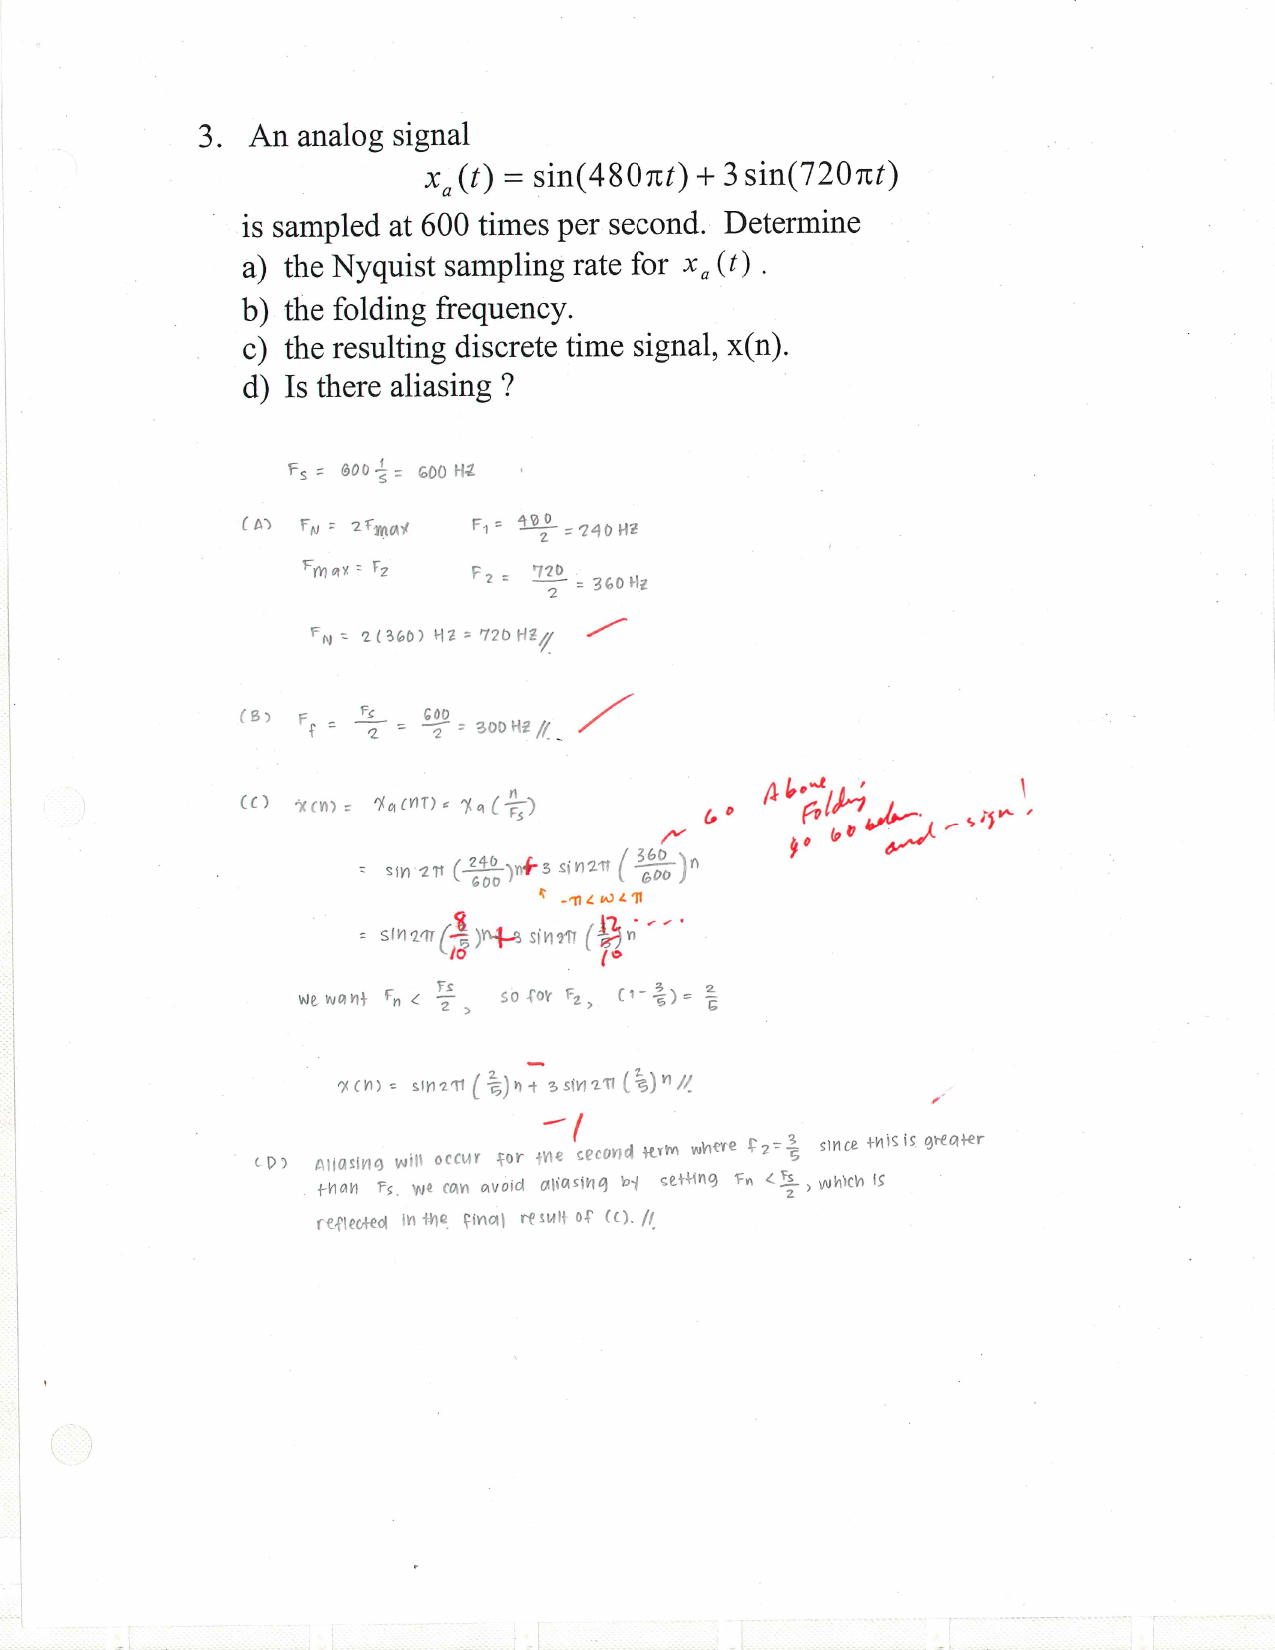 3. An analog signal
x_a(t) = sin(480πt) + 3 sin(720πt)
is sampled at 600 times per second. Determine
a) the Nyquist sampling rate for x_a(t) .
b) the folding frequency.
c) the resulting discrete time signal, x(n).
d) Is there aliasing ?
Fs = 600 1/s = 600 Hz
(A) F_N = 2Fmax F_1 = 480/2 = 240 Hz
Fmax = F_2 F_2 = 720/2 = 360 Hz
F_N = 2(360) Hz = 720 Hz //
(B) F_f = Fs/2 = 600/2 = 300 Hz //
(C) x(n) = x_a(nT) = x_a(n/Fs)
~ 60 Above
Folding
go 60 below
and - sign!
= sin 2π (240/600)n + 3 sin 2π (360/600)n
-π < ω < π
= sin 2π (8/10)n + 3 sin 2π (12/10)n ....
we want Fn < Fs/2, so for F_2, (1 - 3/5) = 2/5
−
x(n) = sin 2π (2/5)n + 3 sin 2π (2/5)n //
-1
(D) Aliasing will occur for the second term where f_2 = 3/5 since this is greater
than Fs. we can avoid aliasing by setting Fn < Fs/2, which is
reflected in the final result of (C). //